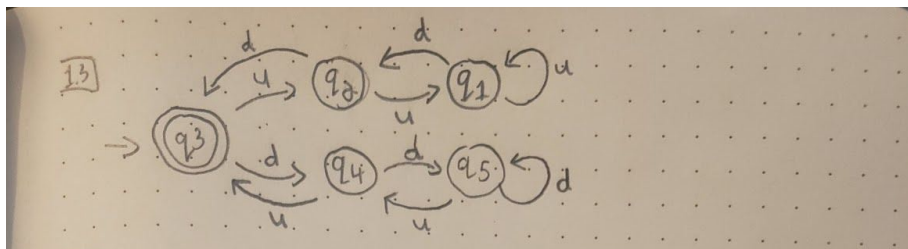 1.3
d d
u
q2 q1 u
u
q3
d d
q4 q5
u u d